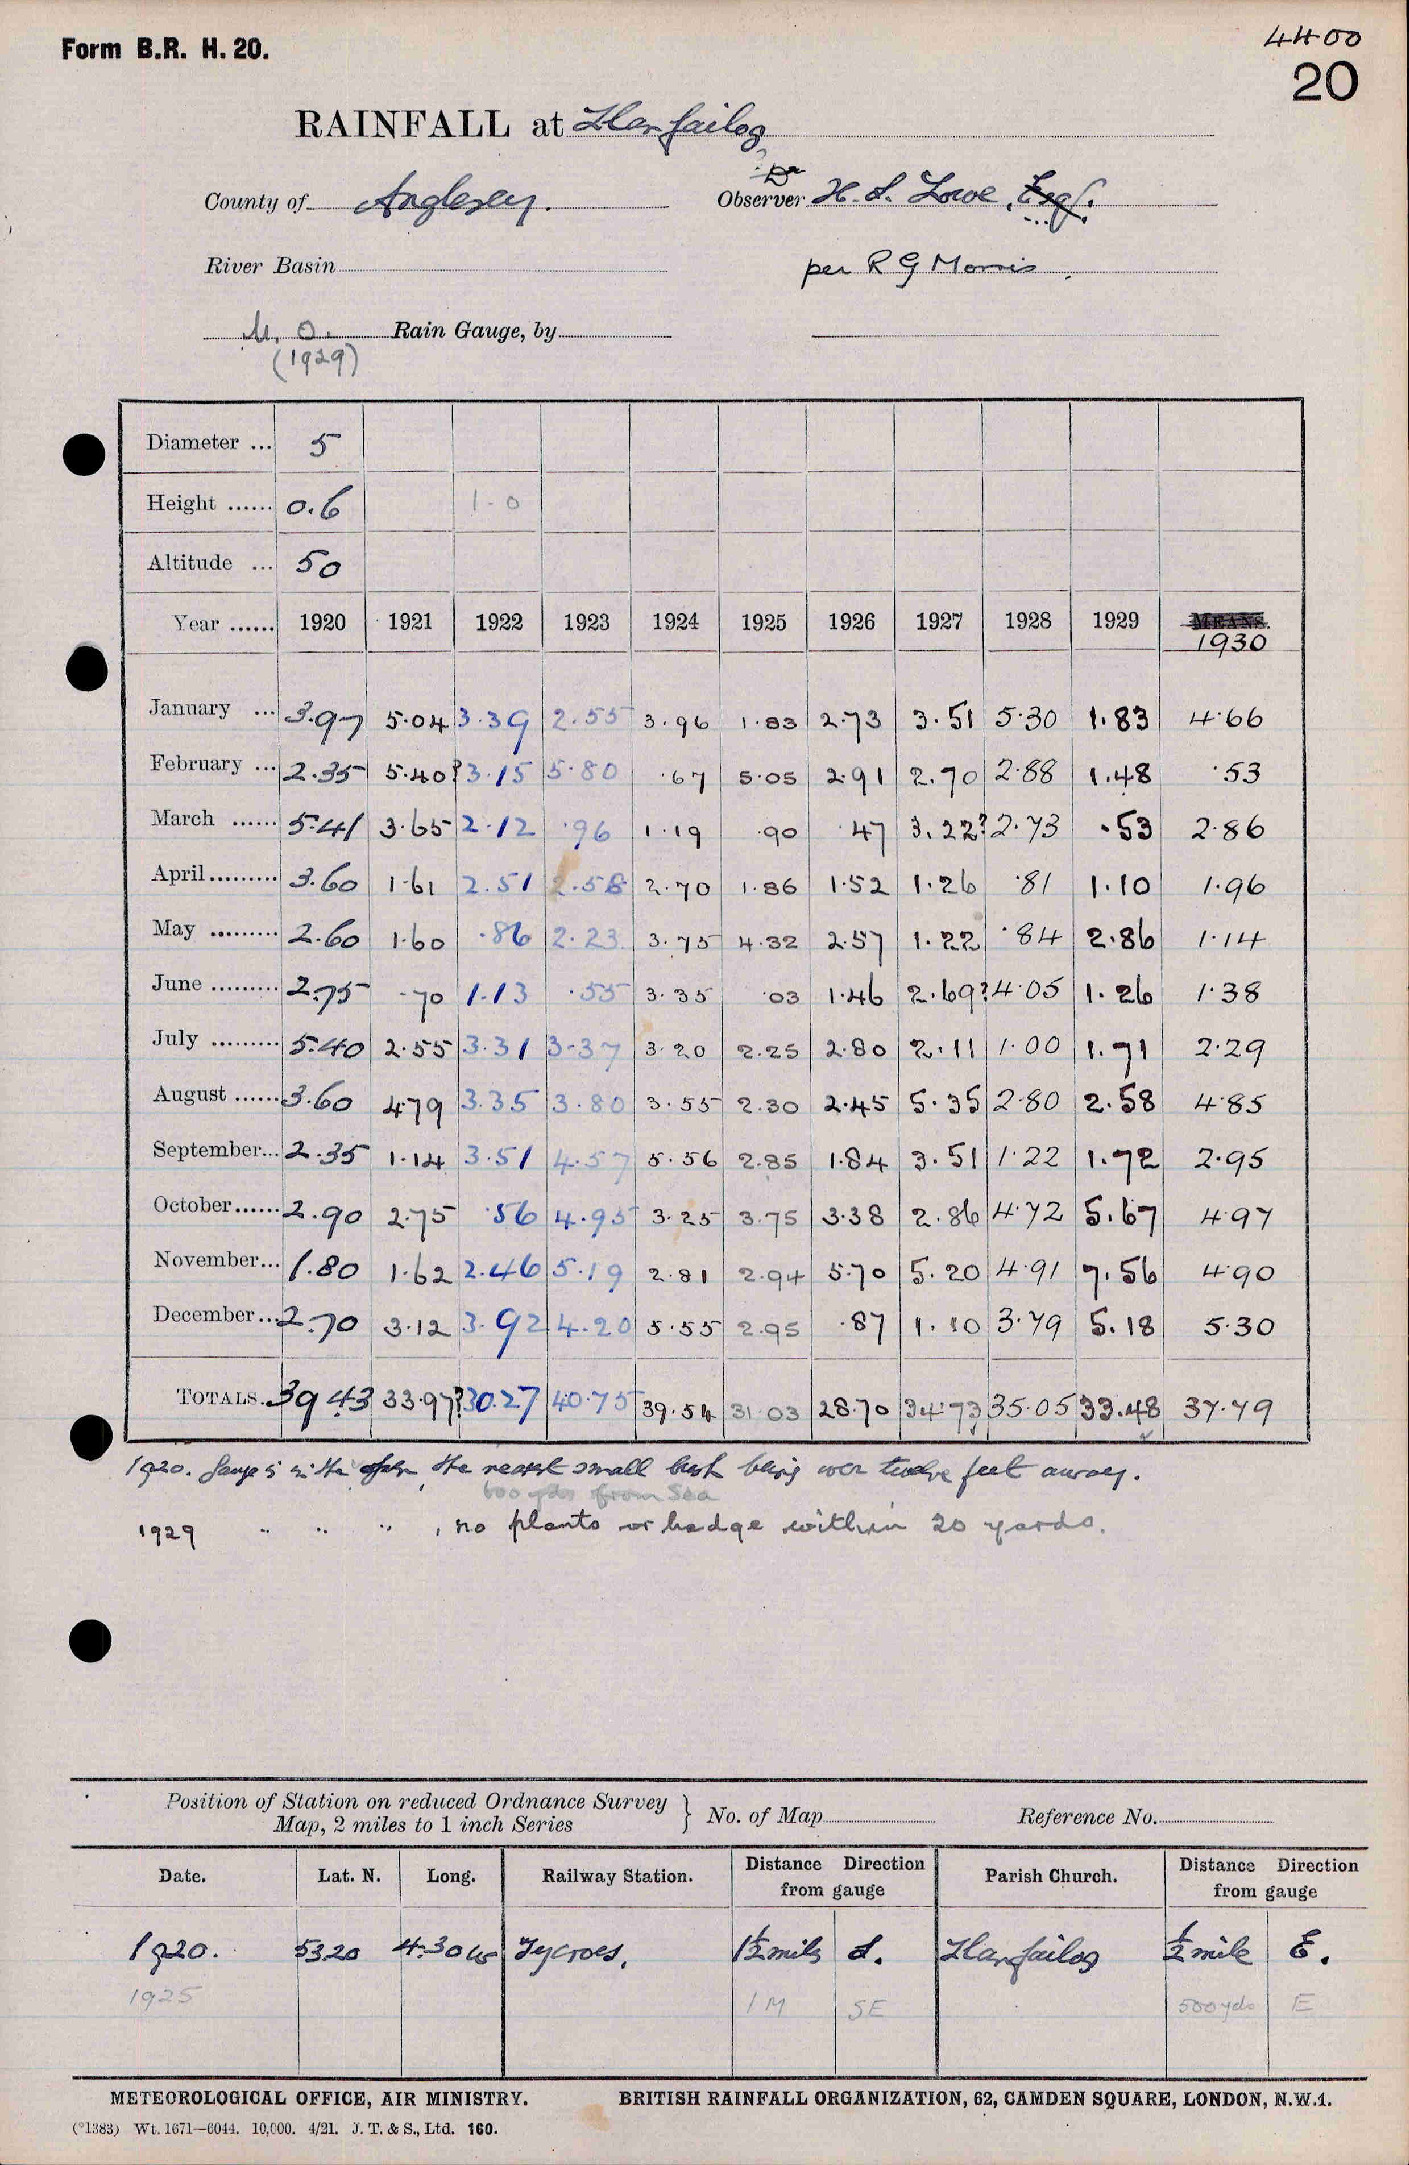 Form B.R. H. 20.
4400
20
RAINFALL at Llanfaelog
County of Anglesey. Observer Dr H. S. Lowe, Esq.
River Basin per R G Morris.
M. O. Rain Gauge, by
(1929)
Diameter ... 5
Height ...... 0.6 1-0
Altitude ... 50
Year ...... 1920 1921 1922 1923 1924 1925 1926 1927 1928 1929 MEANS.
1930
January ... 3.97 5.04 3.39 2.55 3.96 1.83 2.73 3.51 5.30 1.83 4.66
February ... 2.35 5.40? 3.15 5.80 .67 5.05 2.91 2.70 2.88 1.48 .53
March ...... 5.41 3.65 2.12 .96 1.19 .90 .47 3.22? 2.73 .53 2.86
April......... 3.60 1.61 2.51 2.58 2.70 1.86 1.52 1.26 .81 1.10 1.96
May ......... 2.60 1.60 .86 2.23 3.75 4.32 2.57 1.22 .84 2.86 1.14
June ......... 2.75 .70 1.13 .55 3.35 .03 1.46 2.69? 4.05 1.26 1.38
July ......... 5.40 2.55 3.31 3.37 3.20 2.25 2.80 2.11 1.00 1.71 2.29
August ...... 3.60 4.79 3.35 3.80 3.55 2.30 2.45 5.35 2.80 2.58 4.85
September... 2.35 1.14 3.51 4.57 5.56 2.85 1.84 3.51 1.22 1.72 2.95
October...... 2.90 2.75 .56 4.95 3.25 3.75 3.38 2.86 4.72 5.67 4.97
November... 1.80 1.62 2.46 5.19 2.81 2.94 5.70 5.20 4.91 7.56 4.90
December... 2.70 3.12 3.92 4.20 5.55 2.95 .87 1.10 3.79 5.18 5.30
TOTALS. 39.43 33.97? 30.27 40.75 39.54 31.03 28.70 34.73 35.05 33.48 37.79
1920. Gauge is in the open, the nearest small bush being over twelve feet away.
600 yds from Sea
1929 " " " , no plants or hedge within 20 yards.
Position of Station on reduced Ordnance Survey
Map, 2 miles to 1 inch Series } No. of Map Reference No.
Date. Lat. N. Long. Railway Station. Distance Direction from gauge Parish Church. Distance Direction from gauge
1920. 53.20 4.30 W Tycroes. 1½ miles S. Llanfaelog ½ mile E.
1925 1 M SE 500 yds E
METEOROLOGICAL OFFICE, AIR MINISTRY. BRITISH RAINFALL ORGANIZATION, 62, CAMDEN SQUARE, LONDON, N.W.1.
(*1383) Wt. 1671—6044. 10,000. 4/21. J. T. & S., Ltd. 160.